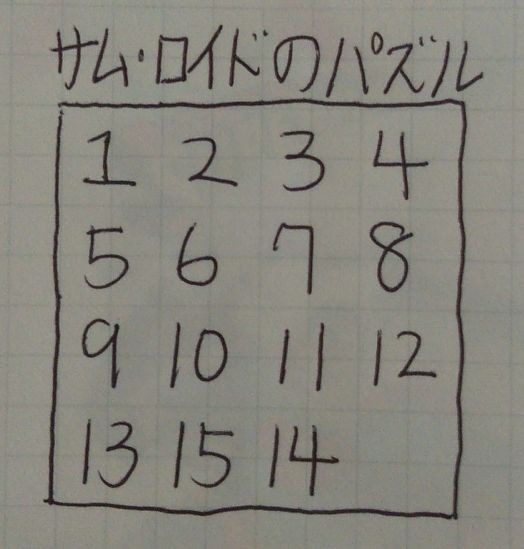 サム・ロイドのパズル
1 2 3 4
5 6 7 8
9 10 11 12
13 15 14